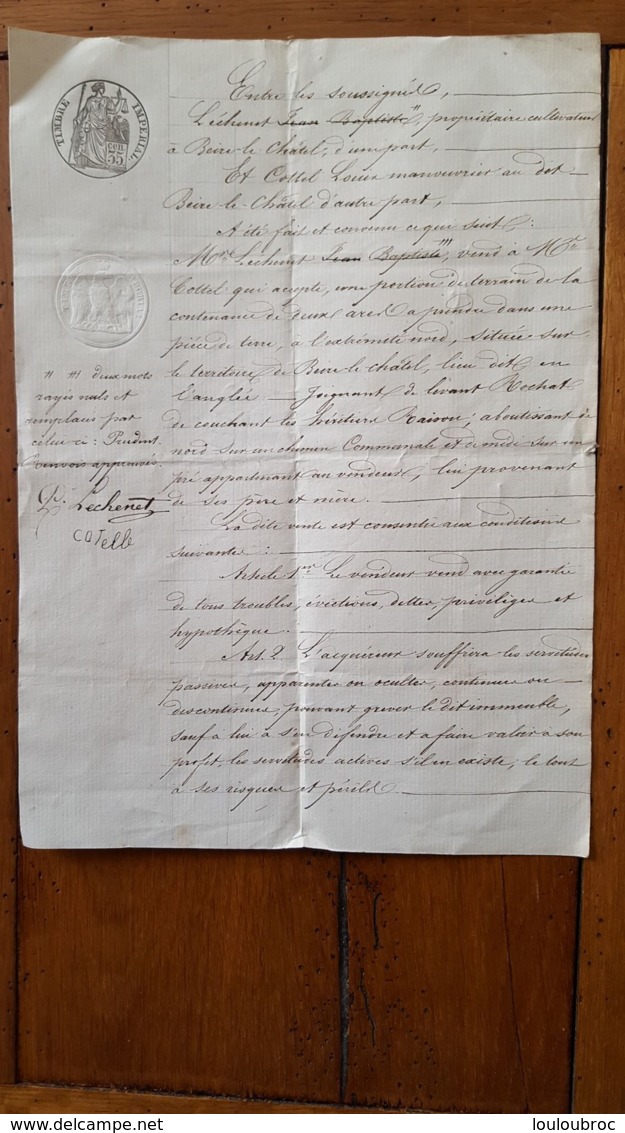 TIMBRE IMPERIAL
35
Entre les soussignés,
Léchenet Jean Baptiste, propriétaire cultivateur
à Beire-le-Châtel, d'une part,
Et Cottel Louis manouvrier au dit
Beire-le-Châtel d'autre part,
A été fait et convenu ce qui suit :
Mr Léchenet Jean Baptiste, vend à Mr
Cottel qui acepte, une portion de terrain de la
contenance de deux ares à prendre dans une
pièce de terre, à l'extrémité nord, située sur
le territoire de Beire-le-châtel, lieu dit en
l'anglée — Joignant de levant Rochat
de couchant les héritiers Raison; aboutissant de
nord sur un chemin Communale et de midi sur un
pré appartenant au vendeur; lui provenant
de ses père et mère.
La dite vente est consentie aux conditions
suivantes :
Article 1er Le vendeur vend avec garantie
de tous troubles, évictions, dettes, priviléges et
hypothèque.
Art. 2. L'acquéreur souffrira les servitudes
passives, apparentes ou ocultes, continues ou
discontinues, pouvant grever le dit immeuble,
sauf à lui à s'en défendre et à faire valoir à son
profit, les servitudes actives s'il en existe; le tout
à ses risques et périls
deux mots
rayés nuls et
remplacés par
celui ci : Prudent.
Renvois approuvés.
P. Lechenet
cotelle
louloubroc
www.delcampe.net